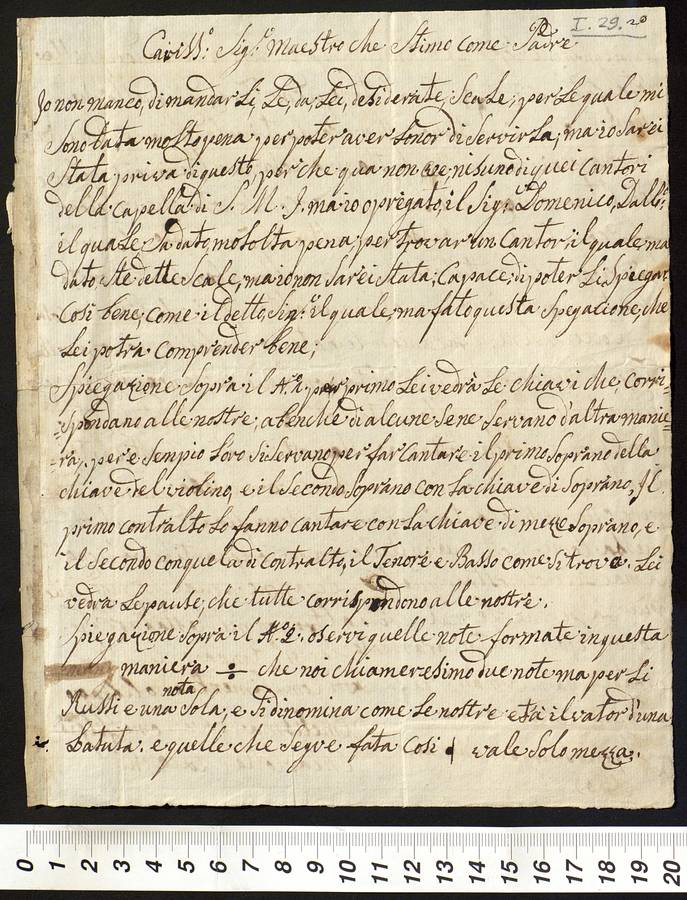 I. 29. 20
Cariss:º Sig:r Maestro che Stimo come Padre
Jo non manco, di mandar Li, Le, da Lei, desiderate, Scale, per Le quale mi
Sono data molto pena, per poter aver Lonor di Servir La, ma io Sarei
Stata, priva di questo, per che qua non ve ni suno di quei Cantori
della Capella di S. M. J. ma io o pregato, il Sig:r Domenico, Dall:
il quale Sa dato, mo Solta pena, per trovar un Cantor, il quale, ma
dato, Ste dette Scale, ma io non Sarei Stata, Capace, di poter Li Spiegar
Cosi bene, Come il detto, Sig:r il quale, ma fato questa Spegacione, che
Lei potra Comprender bene;
Spiegazione Sopra il N.º 1. per primo Lei vedrà Le chiavi che, Corri=
=spondano alle nostre, a benche di alcune Sene Servano d'altra manie=
=ra, per e Sempio Loro Si Servano, per far Cantare il primo Soprano della
chiave del violino, e il Secondo Soprano con La chiave di Soprano, Jl
primo contralto Lo fanno cantare con La chiave di mezzo Soprano, e
il Secondo con quela di Contralto, il Tenore e Basso come Si trova. Lei
vedra Le pause, che tutte corrispondono alle nostre.
Spiegazione Sopra il N.º 2. oservi quelle note formate in questa
maniera ÷ che noi chiameressimo due note ma per Li
Russi e una nota Sola, e Si dinomina come Le nostre e fà il valor d'una
batuta. e quelle che Segve fata Cosi vale Solo mezza.
0 1 2 3 4 5 6 7 8 9 10 11 12 13 14 15 16 17 18 19 20